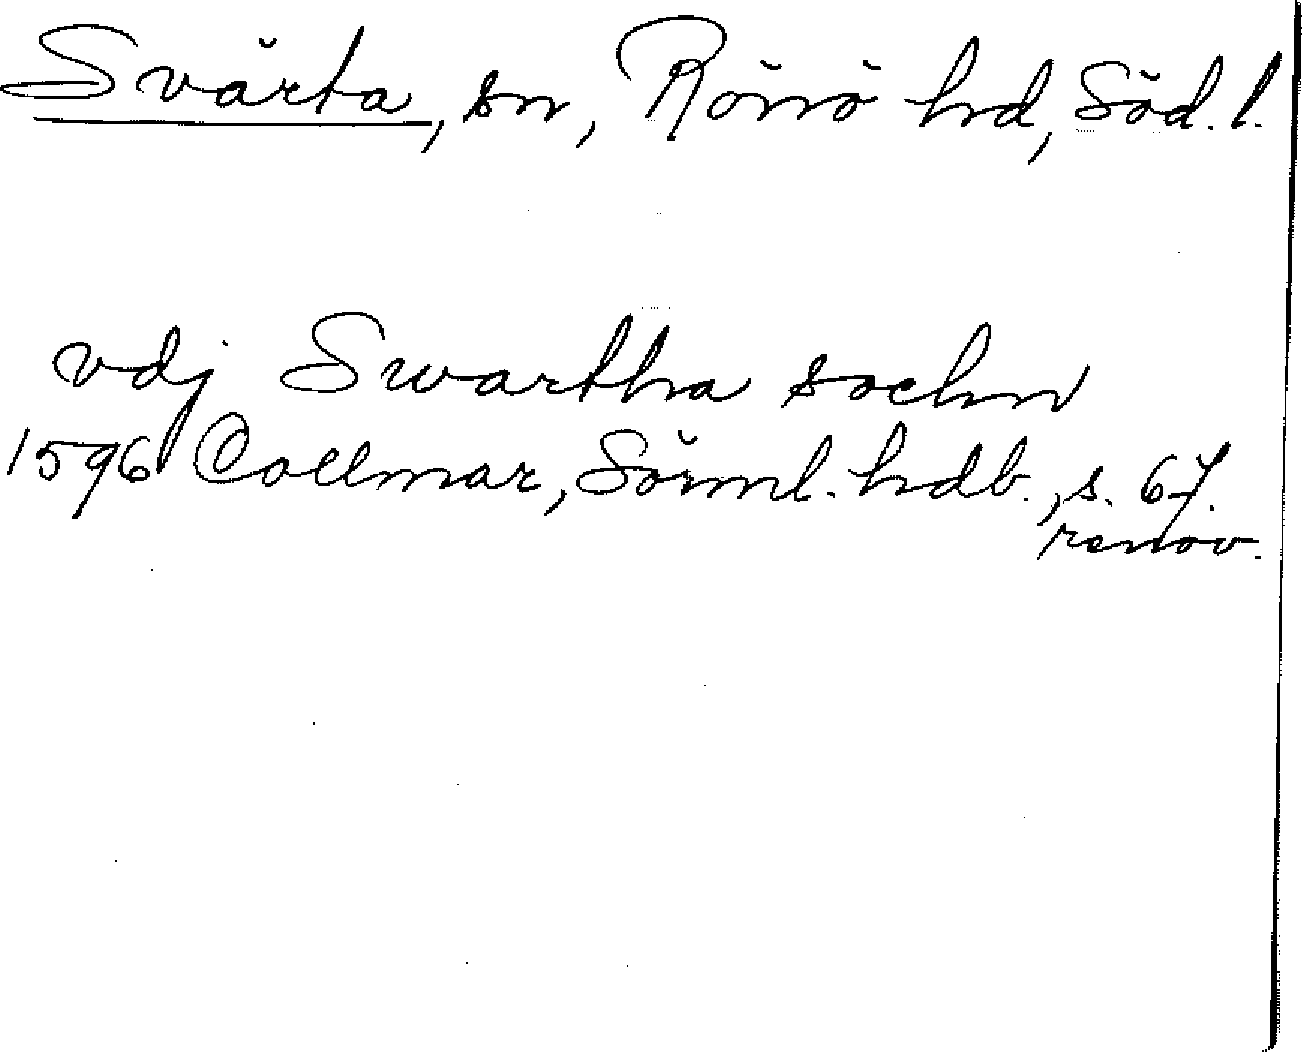 Svärta, sn, Rönö hd, Söd. l.
vdj Swartha sochn
1596 Collmar, Sörml. hdb., s. 67.
renov.